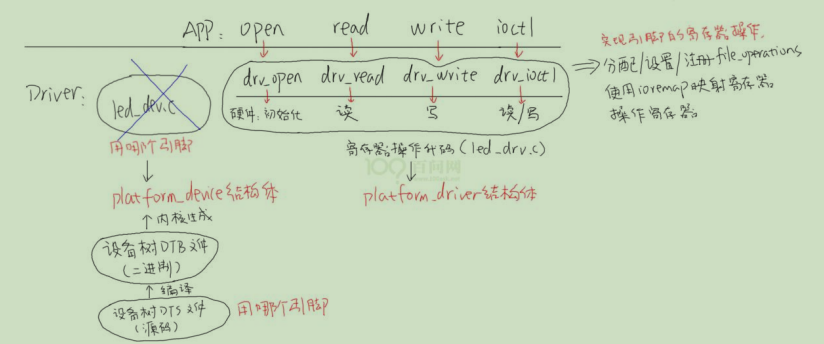 APP: open read write ioctl
实现引脚的寄存器操作.
Driver: led_dev.c
drv_open drv_read drv_write drv_ioctl
⇒ 分配/设置/注册 file_operations
硬件: 初始化 读 写 读/写
使用ioremap映射寄存器
操作寄存器
用哪个引脚
寄存器操作代码(led_drv.c)
100百问网
platform_device结构体
platform_driver结构体
↑内核生成
设备树DTB文件
(二进制)
↑编译
设备树DTS文件
(源码)
用哪个引脚